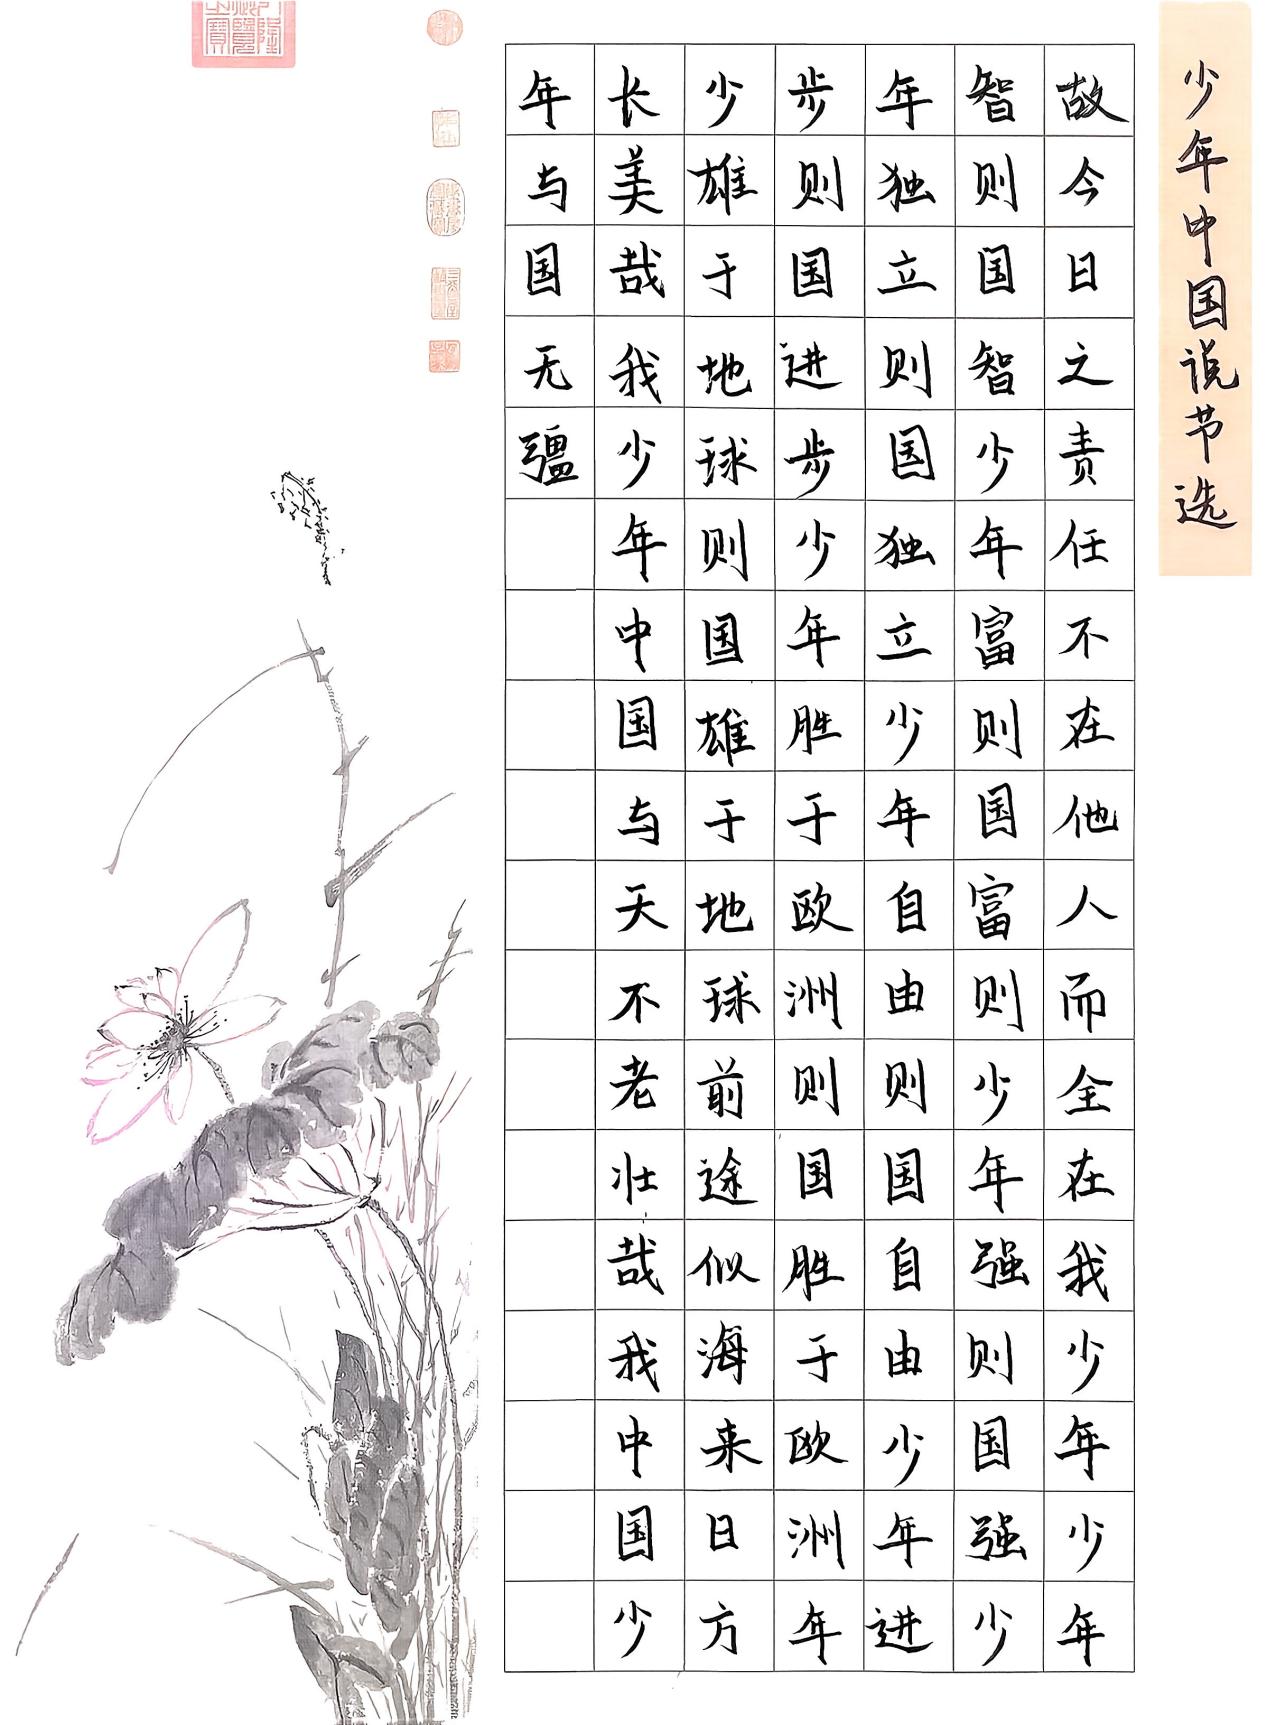 少年中国说节选
故今日之责任不在他人而全在我少年少年
智则国智少年富则国富则少年强则国强少
年独立则国独立少年自由则国自由少年进
步则国进步少年胜于欧洲则国胜于欧洲年
少雄于地球则国雄于地球前途似海来日方
长美哉我少年中国与天不老壮哉我中国少
年与国无疆